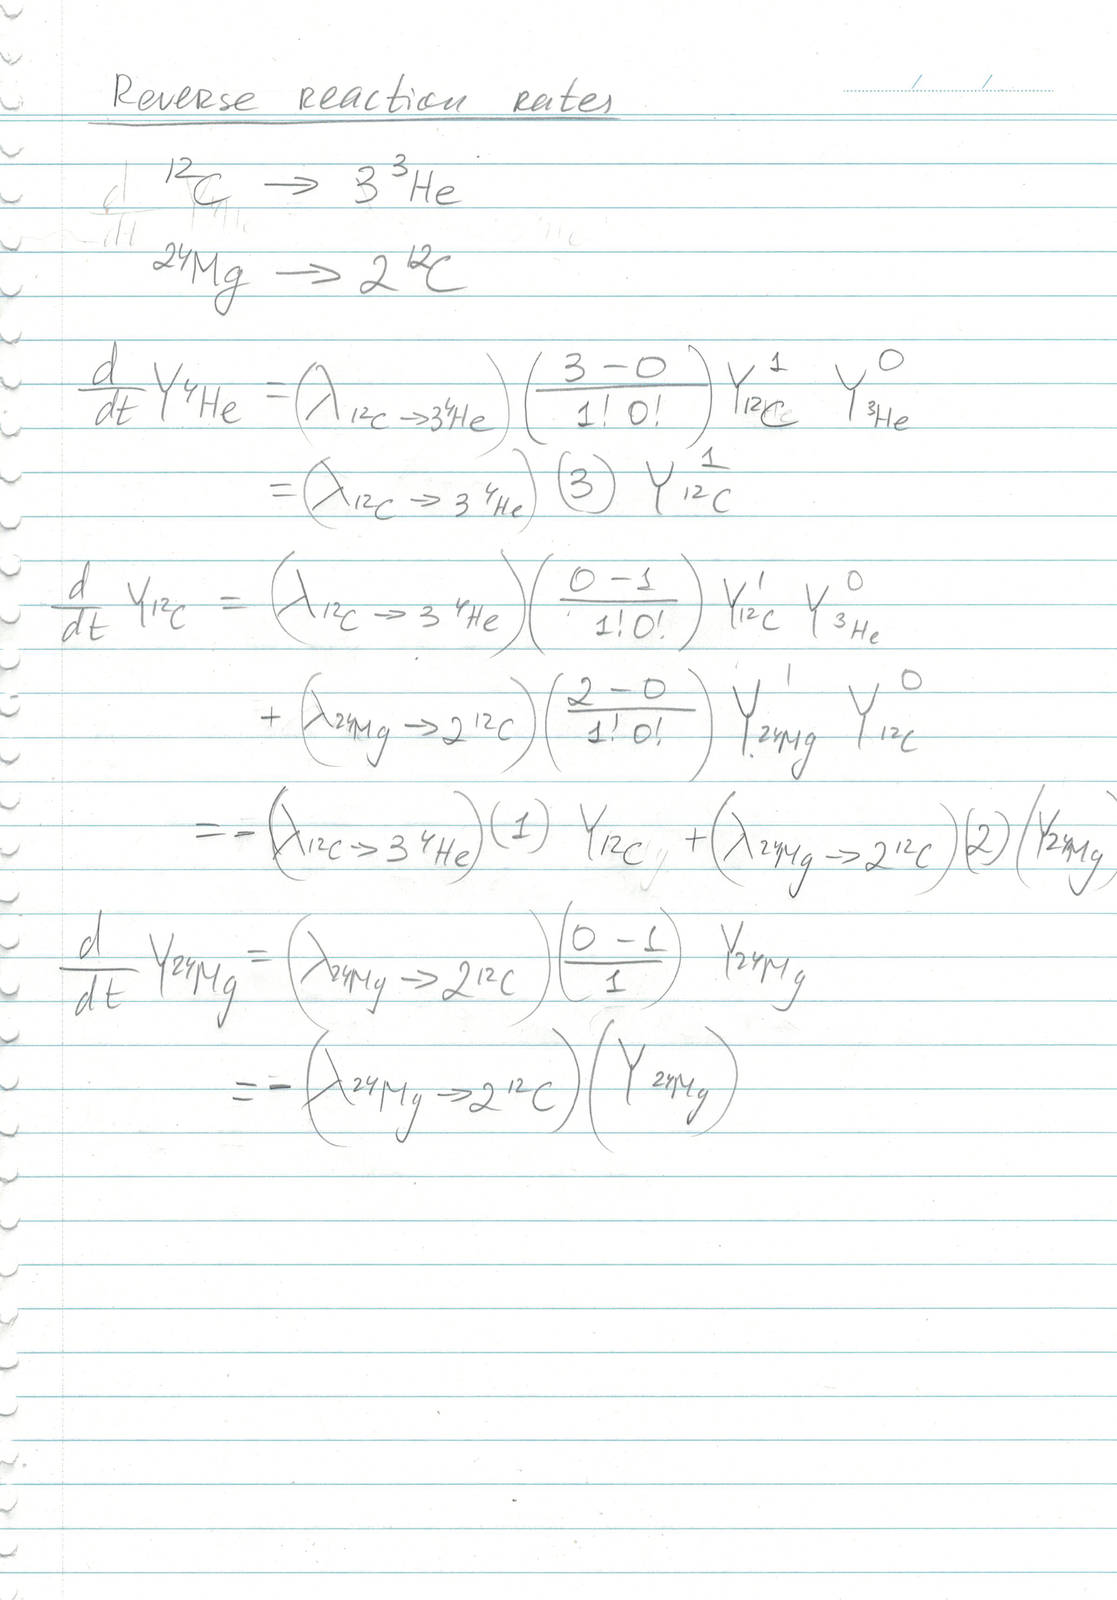 Reverse reaction rates
¹²C → 3 ³He
²⁴Mg → 2 ¹²C
d/dt Y⁴He = (λ ¹²C → 3⁴He) ((3 − 0)/(1! 0!)) Y¹ ¹²C Y⁰ ³He
= (λ ¹²C → 3 ⁴He) (3) Y¹ ¹²C
d/dt Y ¹²C = (λ ¹²C → 3 ⁴He) ((0 − 1)/(1! 0!)) Y¹ ¹²C Y⁰ ³He
+ (λ ²⁴Mg → 2 ¹²C) ((2 − 0)/(1! 0!)) Y¹ ²⁴Mg Y⁰ ¹²C
= − (λ ¹²C → 3 ⁴He) (1) Y ¹²C + (λ ²⁴Mg → 2 ¹²C) (2) (Y ²⁴Mg)
d/dt Y ²⁴Mg = (λ ²⁴Mg → 2 ¹²C) ((0 − 1)/1) Y ²⁴Mg
= − (λ ²⁴Mg → 2 ¹²C) (Y ²⁴Mg)